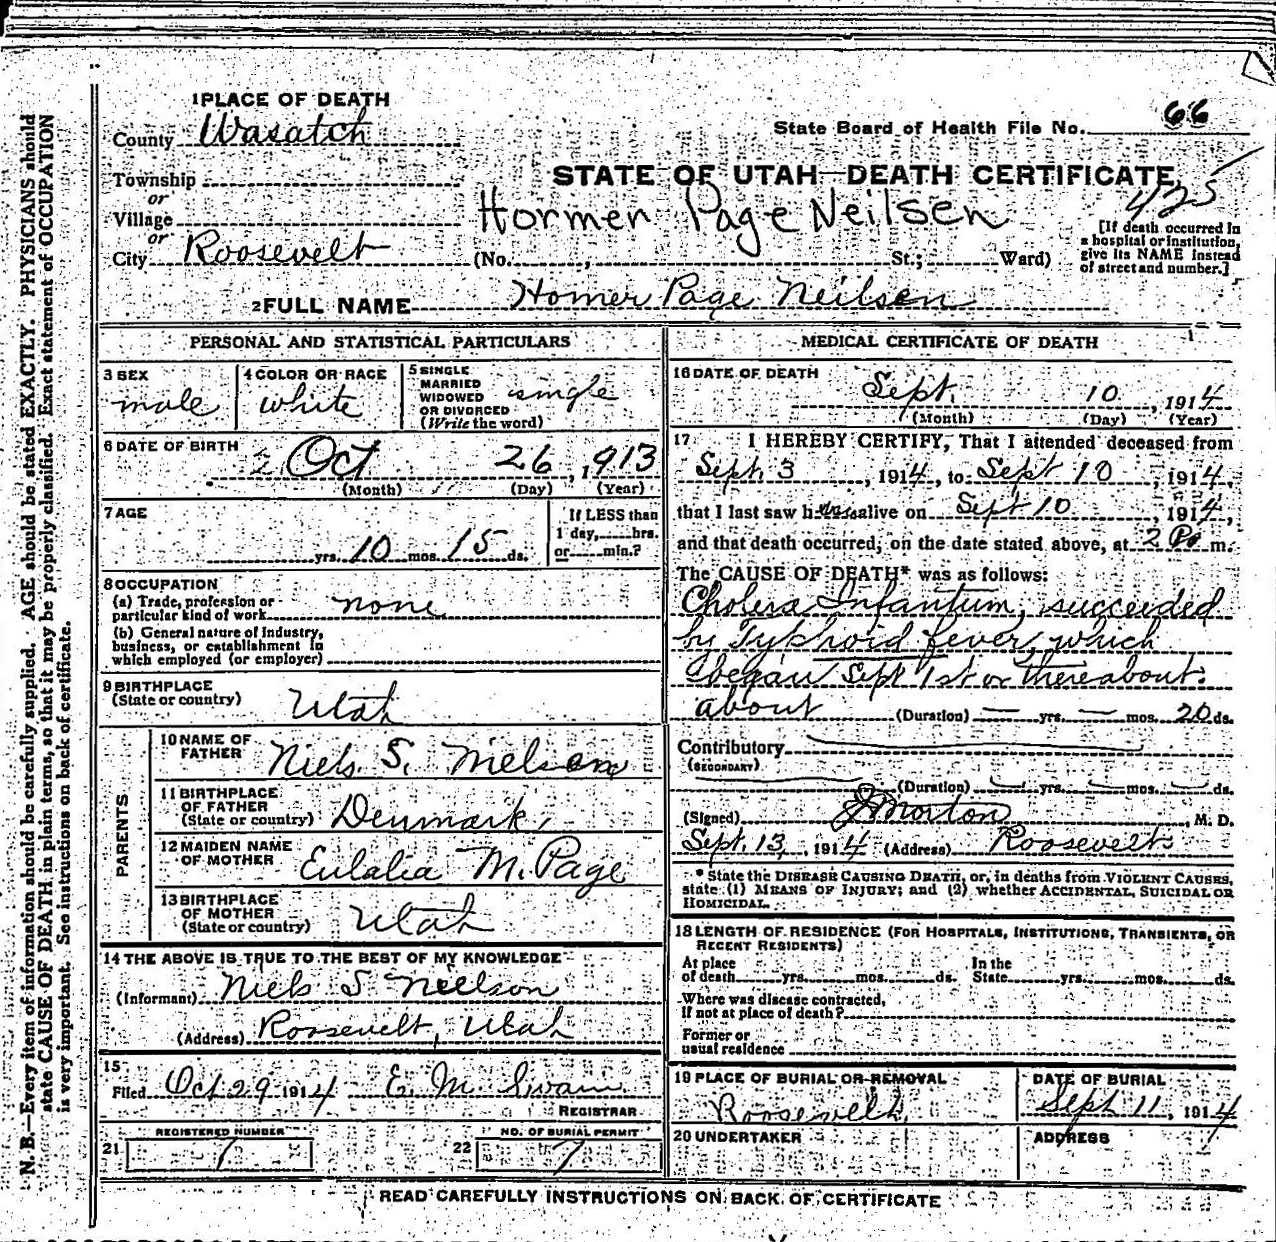 1 PLACE OF DEATH
County Wasatch
State Board of Health File No. 66
Township
or
Village
or
City Roosevelt
STATE OF UTAH—DEATH CERTIFICATE
425
Hormer Page Neilsen
(No. , St.; Ward)
[If death occurred in
a hospital or institution,
give its NAME instead
of street and number.]
2 FULL NAME Homer Page Neilsen
PERSONAL AND STATISTICAL PARTICULARS
3 SEX
male
4 COLOR OR RACE
white
5 SINGLE
MARRIED
WIDOWED
OR DIVORCED
(Write the word)
single
6 DATE OF BIRTH
Oct 26, 1913
(Month) (Day) (Year)
7 AGE
yrs. 10 mos. 15 ds.
If LESS than
1 day, hrs.
or min.?
8 OCCUPATION
(a) Trade, profession or
particular kind of work none
(b) General nature of industry,
business, or establishment in
which employed (or employer)
9 BIRTHPLACE
(State or country) Utah
PARENTS
10 NAME OF
FATHER Niels S. Nielsen
11 BIRTHPLACE
OF FATHER
(State or country) Denmark,
12 MAIDEN NAME
OF MOTHER Eulalia M. Page
13 BIRTHPLACE
OF MOTHER
(State or country) Utah
14 THE ABOVE IS TRUE TO THE BEST OF MY KNOWLEDGE
(Informant) Niels S Neelson
(Address) Roosevelt, Utah
15
Filed Oct 29 1914 E. M. Swain
REGISTRAR
REGISTERED NUMBER
21 7
NO. OF BURIAL PERMIT
22 7
MEDICAL CERTIFICATE OF DEATH
16 DATE OF DEATH
Sept. 10, 1914
(Month) (Day) (Year)
17 I HEREBY CERTIFY, That I attended deceased from
Sept. 3, 1914, to Sept 10, 1914,
that I last saw him alive on Sept 10, 1914,
and that death occurred, on the date stated above, at 2 P. m.
The CAUSE OF DEATH* was as follows:
Cholera Infantum, succeeded
by Typhoid fever, which
began Sept 1st or thereabout.
about (Duration) — yrs. — mos. 20 ds.
Contributory
(SECONDARY)
(Duration) yrs. mos. ds.
(Signed) J Morton, M. D.
Sept. 13, 1914 (Address) Roosevelt
* State the DISEASE CAUSING DEATH, or, in deaths from VIOLENT CAUSES,
state (1) MEANS OF INJURY; and (2) whether ACCIDENTAL, SUICIDAL OR
HOMICIDAL.
18 LENGTH OF RESIDENCE (FOR HOSPITALS, INSTITUTIONS, TRANSIENTS, OR
RECENT RESIDENTS)
At place
of death yrs. mos. ds.
In the
State yrs. mos. ds.
Where was disease contracted,
if not at place of death?
Former or
usual residence
19 PLACE OF BURIAL OR REMOVAL
Roosevelt
DATE OF BURIAL
Sept 11, 1914
20 UNDERTAKER
ADDRESS
READ CAREFULLY INSTRUCTIONS ON BACK OF CERTIFICATE
N. B.—Every item of information should be carefully supplied. AGE should be stated EXACTLY. PHYSICIANS should
state CAUSE OF DEATH in plain terms, so that it may be properly classified. Exact statement of OCCUPATION
is very important. See instructions on back of certificate.